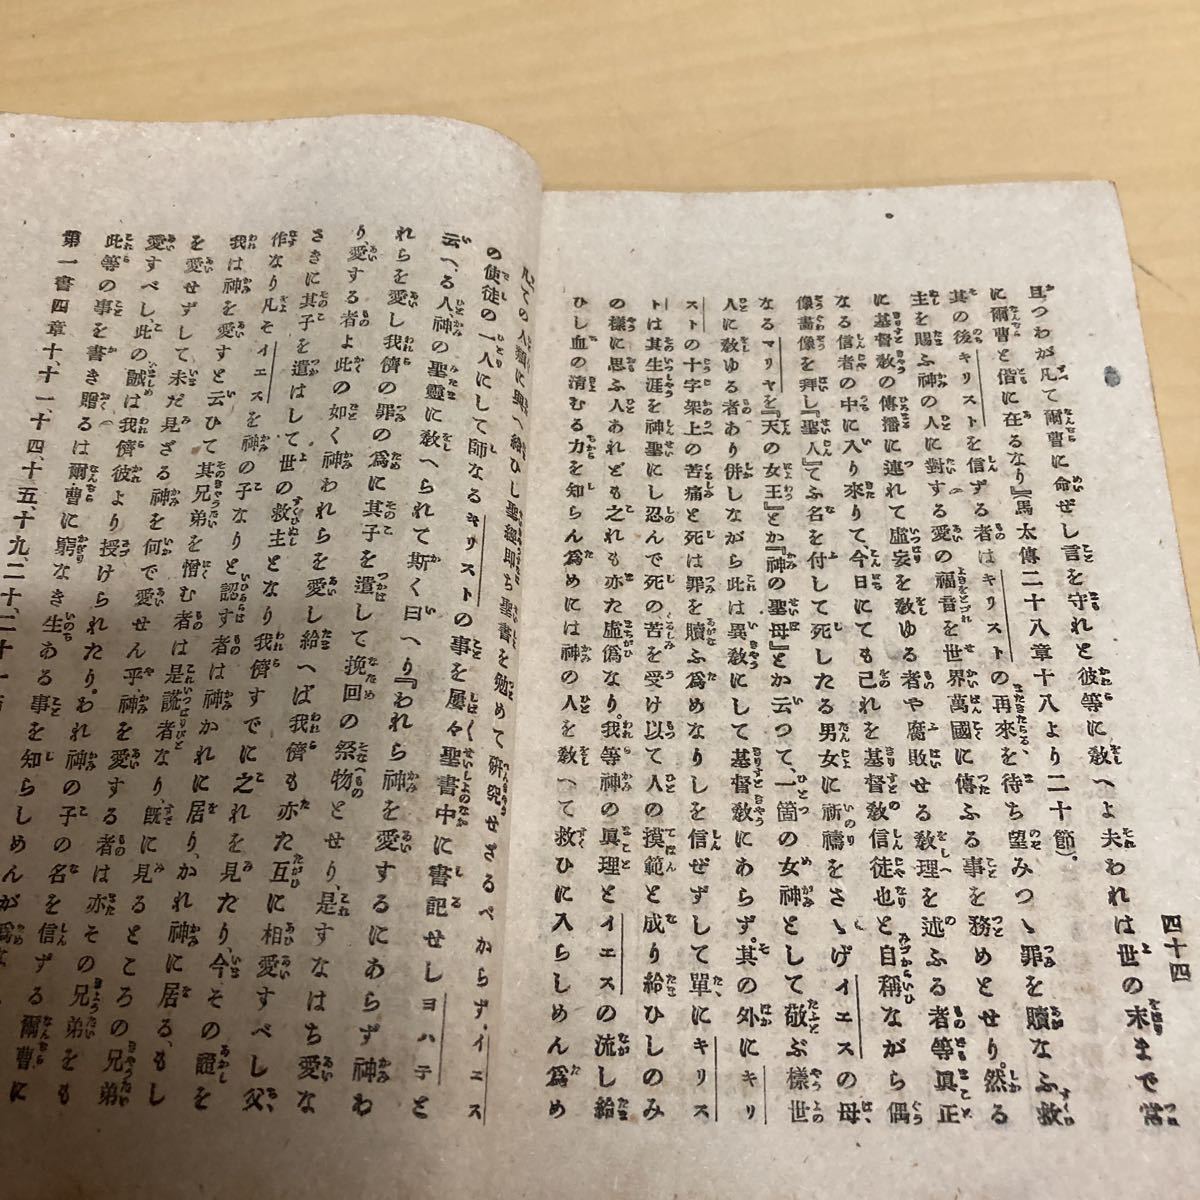 四十四
且つわが凡て爾曹に命ぜし言を守れと彼等に敎へよ夫われは世の末まで常
に爾曹と偕に在るなり』馬太傳二十八章十八より二十節)。
其の後キリストを信ずる者はキリストの再來を待ち望みつゝ罪を贖なふ救
主を賜ふ神の人に對する愛の福音を世界萬國に傳ふる事を務めとせり。然る
に基督敎の傳播に連れて虛妄を敎ゆる者や腐敗せる敎理を述ふる者等眞正
なる信者の中に入り來りて、今日にても己れを基督敎信徒也と自稱ながら偶
像畵像を拜し『聖人』てふ名を付して死したる男女に祈禱をさゝげイエスの母
なるマリヤを『天の女王』とか『神の聖母』とか云つて、一箇の女神として敬ぶ樣世
人に敎ゆる者あり併しながら此は異敎にして基督敎にあらず。其の外にキリ
ストの十字架上の苦痛と死は罪を贖ふ爲めなりしを信ぜずして單にキリス
トは其生涯を神聖にし忍んで死の苦を受け以て人の摸範と成り給ひしのみ
の樣に思ふ人あれども之れも亦た虛僞なり。我等神の眞理とイエスの流し給
ひし血の清むる力を知らん爲めには神の人を敎へて救ひに入らしめんが爲め
凡ての人類に與へ給ひし聖經卽ち聖書を勉めて硏究せざるべからず、イエス
の使徒の一人にして師なるキリストの事を屢々聖書中に書記せしヨハ子と
云へる人、神の聖靈に敎へられて斯く曰へり『われら神を愛するにあらず神わ
れらを愛し我儕の罪の爲に其子を遣して挽回の祭物とせり、是すなはち愛な
り、愛する者よ此の如く神われらを愛し給へば我儕も亦た互に相愛すべし父、
さきに其子を遣はして世の救主となり我儕すでに之れを見たり、今その證を
作なり凡そイエスを神の子なりと認す者は神かれに居り、かれ神に居る、もし
我は神を愛すと云ひて其兄弟を憎む者は是謊者なり、旣に見るところの兄弟
を愛せずして未だ見ざる神を何で愛せん乎、神を愛する者は亦その兄弟をも
愛すべし、此の誡は我儕彼より授けられたり。われ神の子の名を信ずる爾曹に
此等の事を書き贈るは爾曹に窮なき生ある事を知らしめんが爲
第一書四章十、十一、十四、十五、十九、二十、二十一